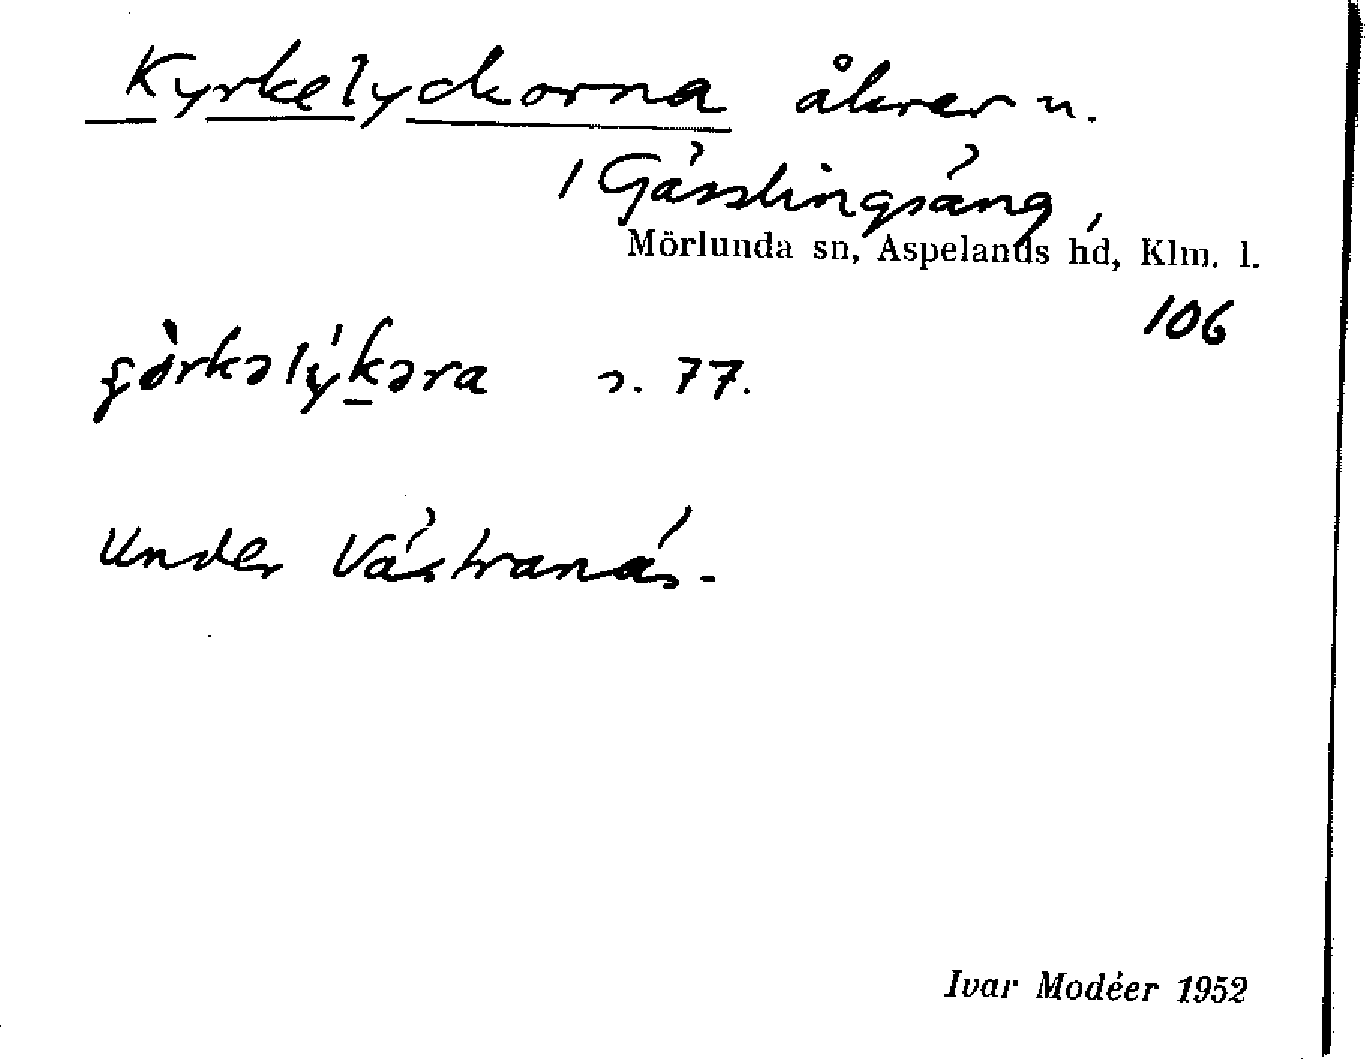 Kyrkelyckorna åkrar u.
1 Gässlingsäng,
Mörlunda sn, Aspelands hd, Klm. l.
106
s. 77.
Under Västranäs.
Ivar Modéer 1952